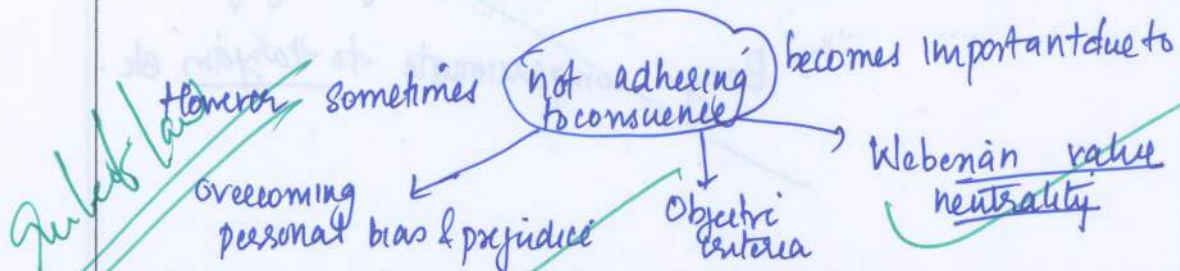 However sometimes not adhering to consuence becomes important due to
overcoming personal bias & prejudice
Objectri criteria
Weberian value neutrality